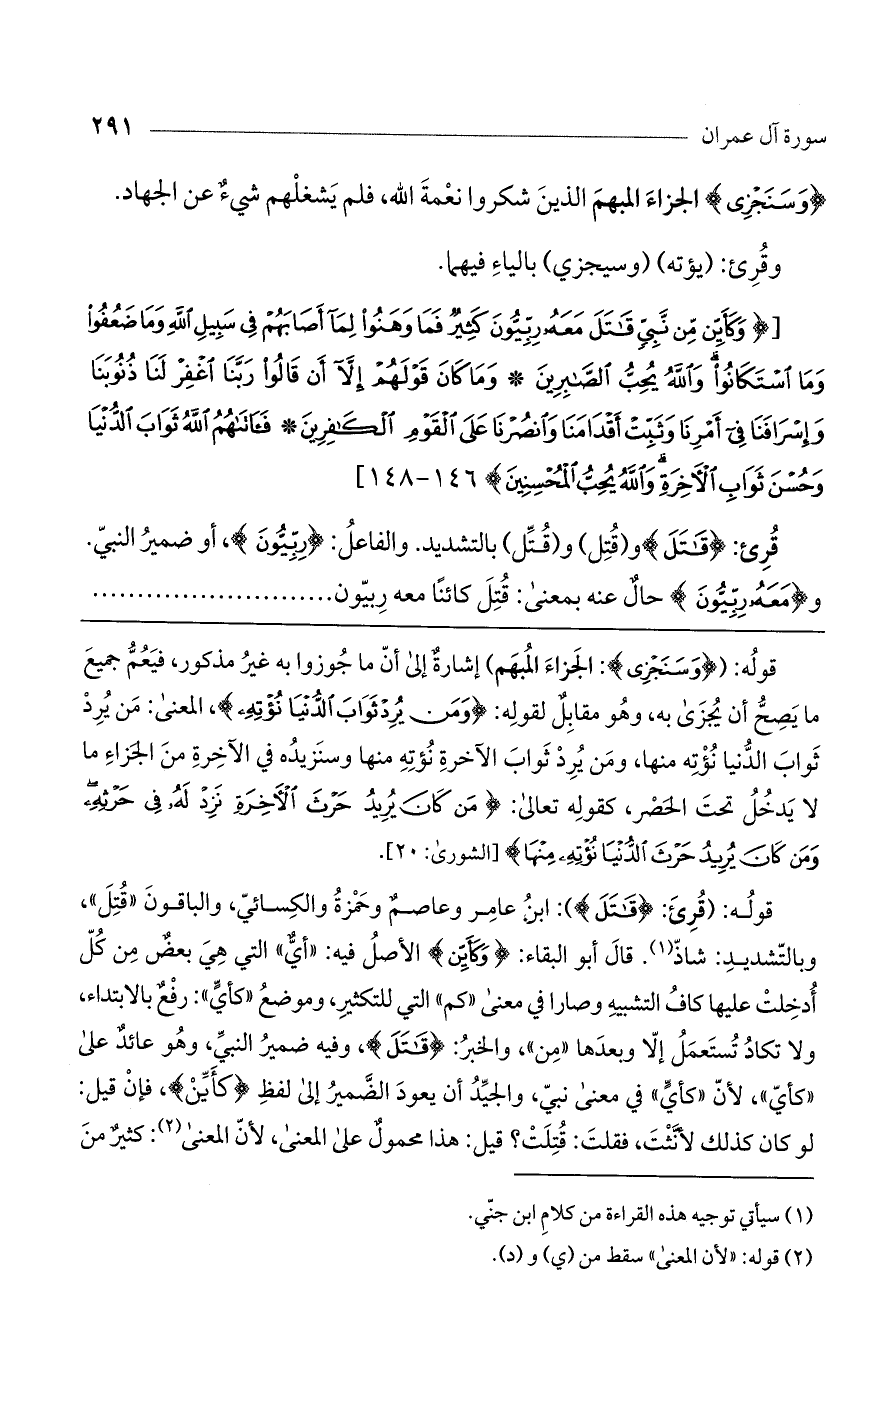 سورة آل عمران ٢٩١
﴿وَسَنَجْزِى﴾ الجزاءَ المبهمَ الذينَ شكروا نعْمةَ الله، فلم يَشغلْهم شيءٌ عن الجهاد.
وقُرِئ: (يؤته) (وسيجزي) بالياءِ فيهما.
[﴿وَكَأَيِّن مِّن نَّبِيٍّ قَٰتَلَ مَعَهُۥ رِبِّيُّونَ كَثِيرٌ فَمَا وَهَنُوا۟ لِمَآ أَصَابَهُمْ فِى سَبِيلِ ٱللَّهِ وَمَا ضَعُفُوا۟
وَمَا ٱسْتَكَانُوا۟ۗ وَٱللَّهُ يُحِبُّ ٱلصَّٰبِرِينَ * وَمَا كَانَ قَوْلَهُمْ إِلَّآ أَن قَالُوا۟ رَبَّنَا ٱغْفِرْ لَنَا ذُنُوبَنَا
وَإِسْرَافَنَا فِىٓ أَمْرِنَا وَثَبِّتْ أَقْدَامَنَا وَٱنصُرْنَا عَلَى ٱلْقَوْمِ ٱلْكَٰفِرِينَ * فَـَٔاتَىٰهُمُ ٱللَّهُ ثَوَابَ ٱلدُّنْيَا
وَحُسْنَ ثَوَابِ ٱلْـَٔاخِرَةِۗ وَٱللَّهُ يُحِبُّ ٱلْمُحْسِنِينَ﴾ ١٤٦-١٤٨]
قُرِئ: ﴿قَٰتَلَ﴾ و(قُتِل) و(قُتِّل) بالتشديد. والفاعلُ: ﴿رِبِّيُّونَ﴾، أو ضميرُ النبيّ.
و﴿مَعَهُۥ رِبِّيُّونَ﴾ حالٌ عنه بمعنىٰ: قُتِلَ كائنًا معه رِبيّون.............................
قولُه: (﴿وَسَنَجْزِى﴾: الجَزاءَ المُبهَم) إشارةٌ إلىٰ أنّ ما جُوزوا به غيرُ مذكور، فيَعُمُّ جميعَ
ما يَصِحُّ أن يُجزَىٰ به، وهُو مقابِلٌ لقولِه: ﴿وَمَن يُرِدْ ثَوَابَ ٱلدُّنْيَا نُؤْتِهِۦ﴾، المعنىٰ: مَن يُرِدْ
ثَوابَ الدُّنيا نُؤْتِه منها، ومَن يُرِدْ ثَوابَ الآخرةِ نُؤتِهِ منها وسنَزيدُه في الآخِرةِ منَ الجَزاءِ ما
لا يَدخُلُ تحتَ الحَصْر، كقولِه تعالىٰ: ﴿مَن كَانَ يُرِيدُ حَرْثَ ٱلْـَٔاخِرَةِ نَزِدْ لَهُۥ فِى حَرْثِهِۦۖ
وَمَن كَانَ يُرِيدُ حَرْثَ ٱلدُّنْيَا نُؤْتِهِۦ مِنْهَا﴾ [الشورىٰ: ٢٠].
قولُه: (قُرِئَ: ﴿قَٰتَلَ﴾): ابنُ عامِر وعاصمٌ وحَمْزةُ والكِسائيّ، والباقونَ «قُتِلَ»،
وبالتّشديدِ: شاذّ(١). قالَ أبو البقاء: ﴿وَكَأَيِّن﴾ الأصلُ فيه: «أيٌّ» التي هِيَ بعضٌ مِن كُلّ
أُدخِلتْ عليها كافُ التشبيهِ وصارا في معنىٰ «كم» التي للتكثيرِ، وموضعُ «كأيٍّ»: رفْعٌ بالابتداء،
ولا تكادُ تُستَعمَلُ إلّا وبعدَها «مِن»، والخبرُ: ﴿قَٰتَلَ﴾، وفيه ضميرُ النبيِّ، وهُو عائدٌ علىٰ
«كأيّ»، لأنّ «كأيٍّ» في معنىٰ نبيّ، والجيِّدُ أن يعودَ الضَّميرُ إلىٰ لفظِ ﴿كَأَيِّنْ﴾، فإنْ قيل:
لو كان كذلك لأنَّثْتَ، فقلتَ: قُتِلَتْ؟ قيل: هذا محمولٌ علىٰ المعنىٰ، لأنّ المعنىٰ(٢): كثيرٌ منَ
(١) سيأتي توجيه هذه القراءة من كلامِ ابن جنّي.
(٢) قوله: «لأن المعنىٰ» سقط من (ي) و (د).